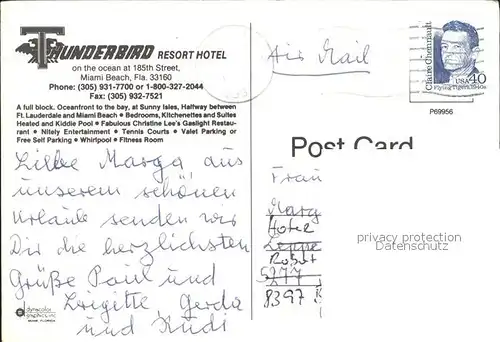 THUNDERBIRD RESORT HOTEL
on the ocean at 185th Street,
Miami Beach, Fla. 33160
Phone: (305) 931-7700 or 1-800-327-2044
Fax: (305) 932-7521
A full block. Oceanfront to the bay, at Sunny Isles, Halfway between
Ft. Lauderdale and Miami Beach • Bedrooms, Kitchenettes and Suites
Heated and Kiddie Pool • Fabulous Christine Lee's Gaslight Restau-
rant • Nitely Entertainment • Tennis Courts • Valet Parking or
Free Self Parking • Whirlpool • Fitness Room
Liebe Marga, aus
unserem schönen
Urlaub senden wir
Dir die herzlichsten
Grüße Paul und
Brigitte, Gerda
und Rudi
dynacolor
graphics, inc.
MIAMI, FLORIDA
Air Mail
Claire Chennault
Flying Tigers, 1940s
USA 40
P69956
Post Card
Frau
Marg
Hotel
Robert
8397
privacy protection
Datenschutz